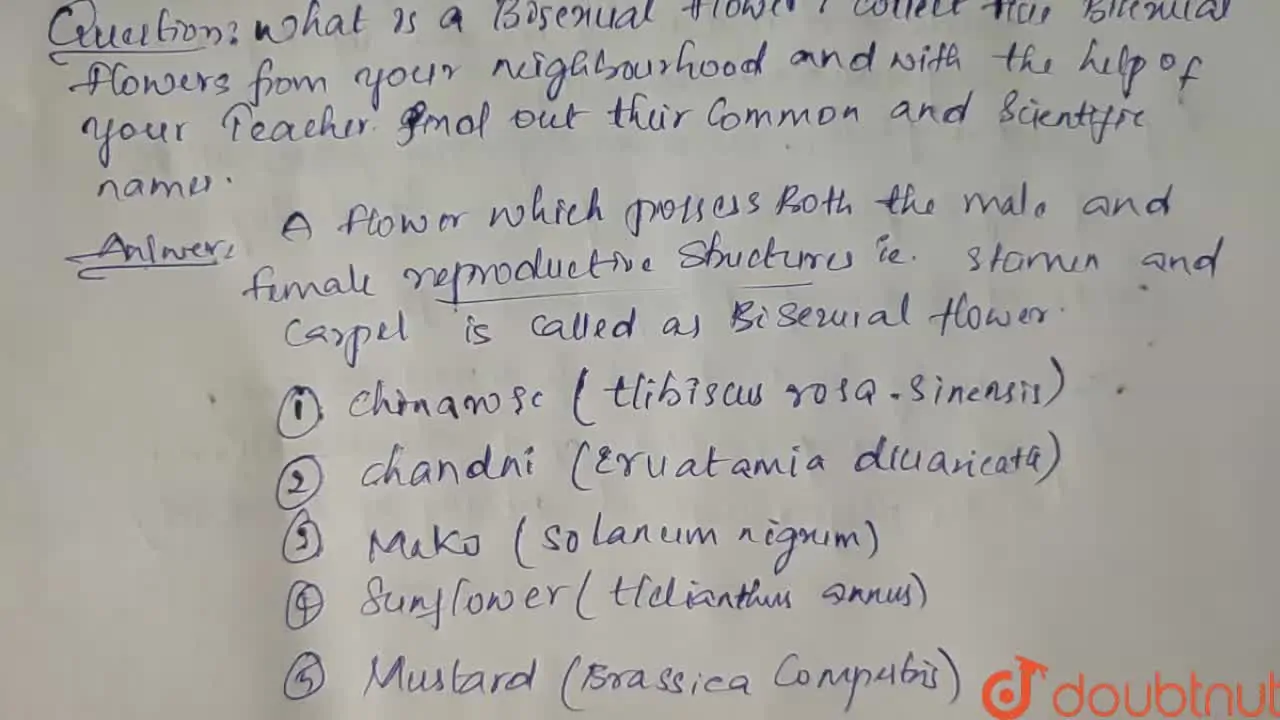 Question: what is a Bisexual flower? collect five Bisexual
flowers from your neighbourhood and with the help of
your Teacher find out their common and scientific
names.
Answer: A flower which possess Both the male and
female reproductive structures ie. stamen and
carpel is called as Bisexual flower.
① Chinarose (Hibiscus rosa-sinensis)
② Chandni (Ervatamia divaricata)
③ Mako (solanum nigrum)
④ Sunflower (Helianthus annus)
⑤ Mustard (Brassica
doubtnut